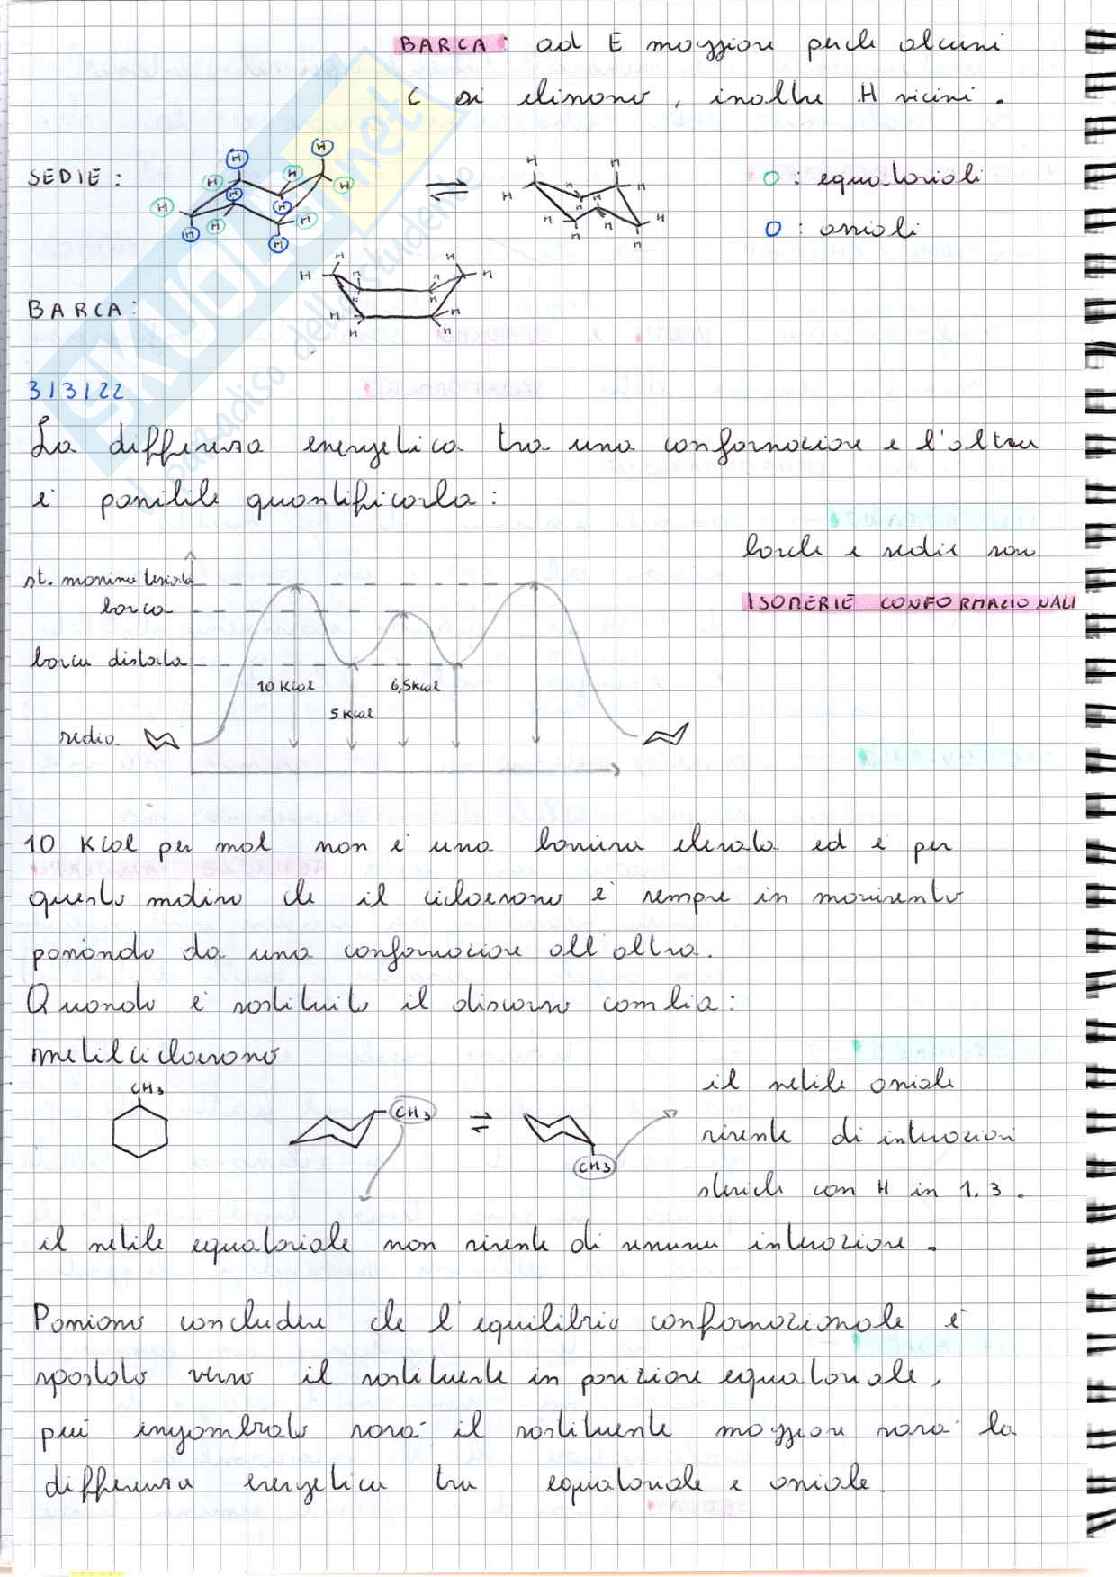 BARCA: ad E maggiore perché alcuni
C si eclissano, inoltre H vicini.
SEDIE:
H H H H H H H H H H H H
⇌
H H H H H H H H H H H
O: equatoriali
O: assiali
BARCA:
H H H H H H H H H H H H
3/3/22
La differenza energetica tra una conformazione e l'altra
è possibile quantificarla:
barche e sedie sono
ISOMERIE CONFORMAZIONALI
barca
barca distorta
sedia
10 Kcal
5 Kcal
6,5 Kcal
10 Kcal per mol non è una barriera elevata ed è per
questo motivo che il cicloesano è sempre in movimento
passando da una conformazione all'altra.
Quando è sostituito il discorso cambia:
metilcicloesano
CH3
CH3 ⇌ CH3
il metile assiale
risente di interazioni
steriche con H in 1,3.
il metile equatoriale non risente di nessuna interazione.
Possiamo concludere che l'equilibrio conformazionale è
spostato verso il sostituente in posizione equatoriale,
più ingombrato sarà il sostituente maggiore sarà la
differenza energetica tra equatoriale e assiale
SKUOLA.net
paradiso dello studente